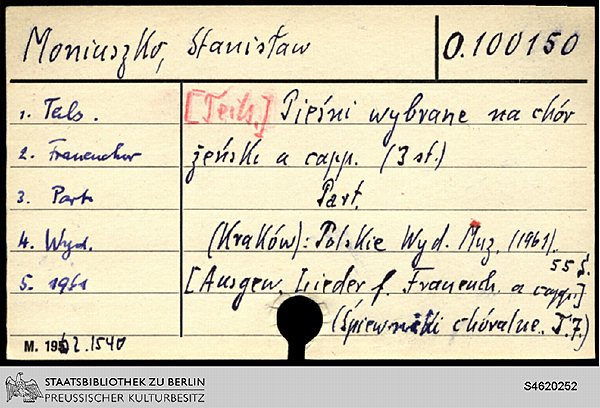 Moniuszko, Stanisław
O.100150
1. Tals.
[Teils.] Pieśni wybrane na chór
2. Frauenchor
żeński a capp. (3 st.)
3. Part.
Part.
4. Wyd.
(Kraków): Polskie Wyd. Muz. (1961).
55 S.
5. 1961
[Ausgew. Lieder f. Frauench. a capp.]
(Śpiewniki chóralne. T.7.)
M. 1962.1540
STAATSBIBLIOTHEK ZU BERLIN
PREUSSISCHER KULTURBESITZ
S4620252